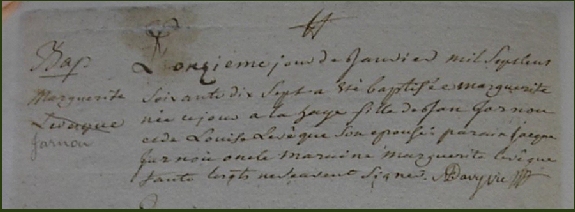 Bap.
Marguerite
Levêque
Jarnou
L'onzieme jour de Janvier mil Sept cens
Soixante dix Sept a été baptisée marguerite
née ce jour a la haye fille de Jean Jarnou
et de Louise Levêque Son epouse parain Jacque
Jarnou oncle maraine marguerite levêque
tante lesqts ne scavent Signer.